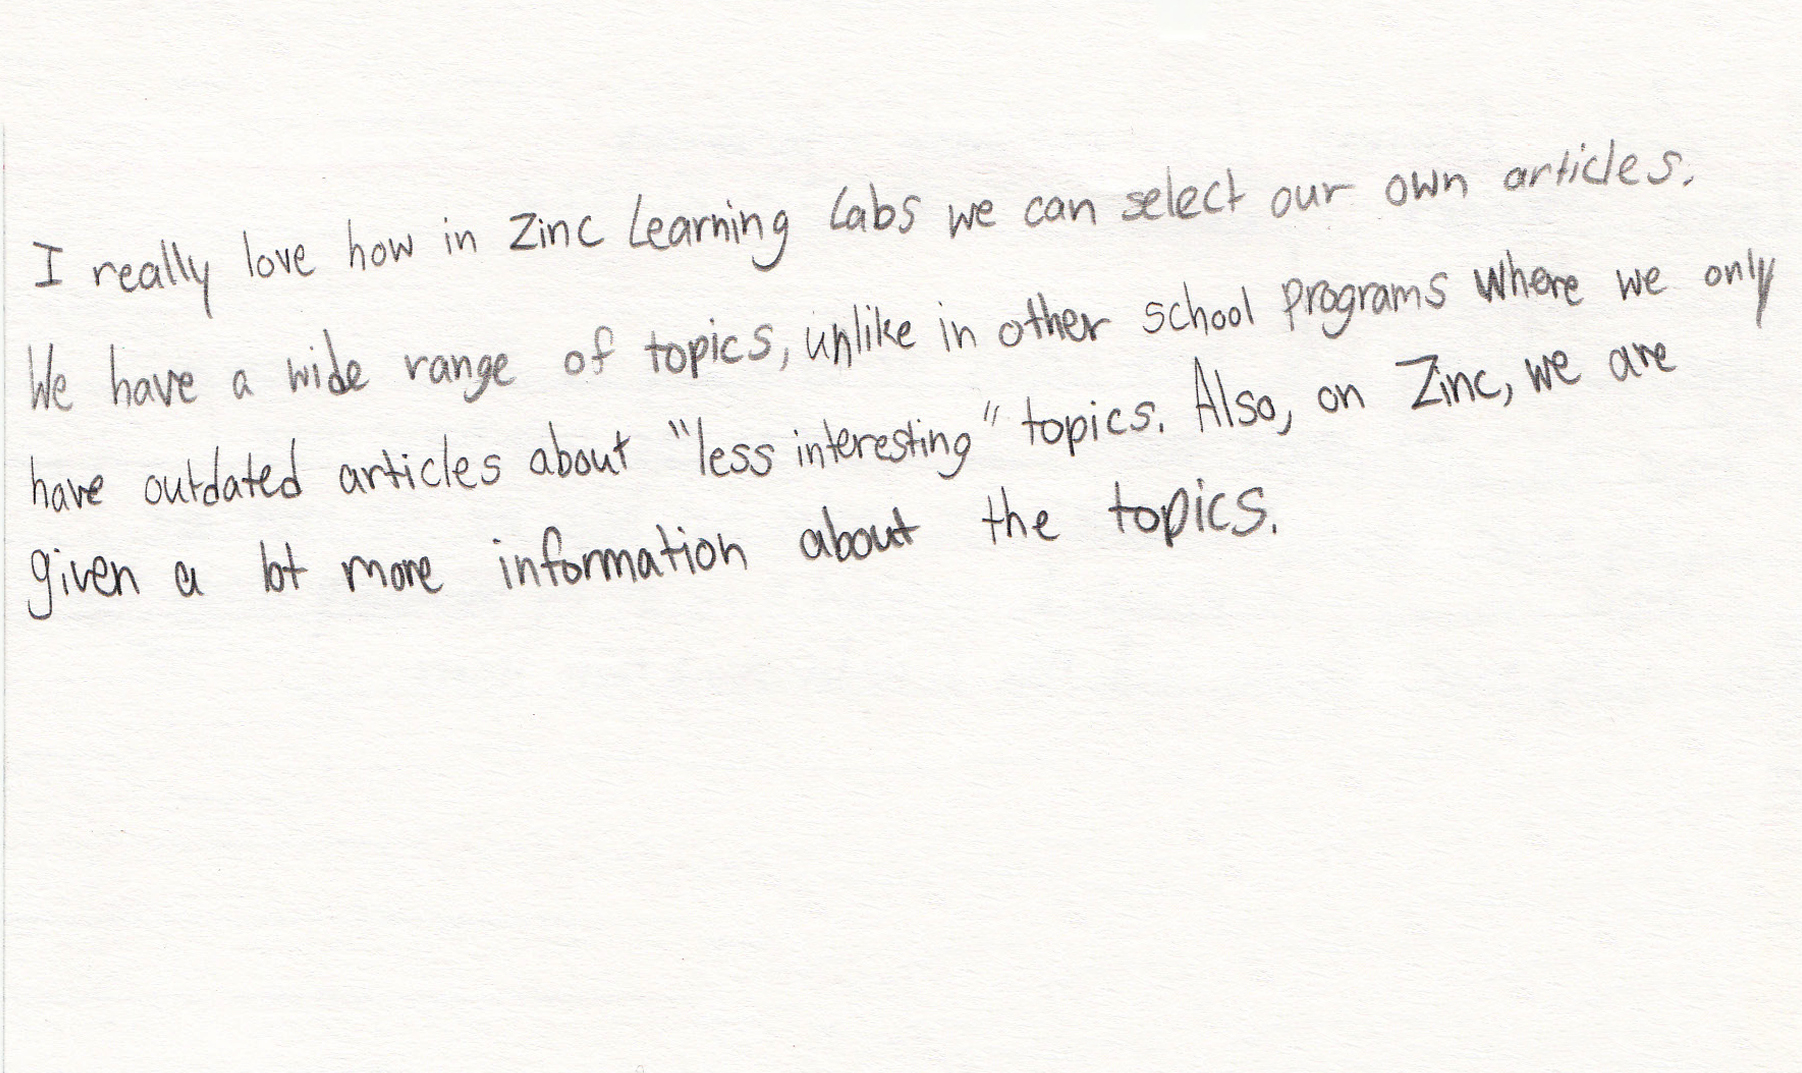 I really love how in Zinc Learning Labs we can select our own articles.
We have a wide range of topics, unlike in other school programs where we only
have outdated articles about "less interesting" topics. Also, on Zinc, we are
given a lot more information about the topics.